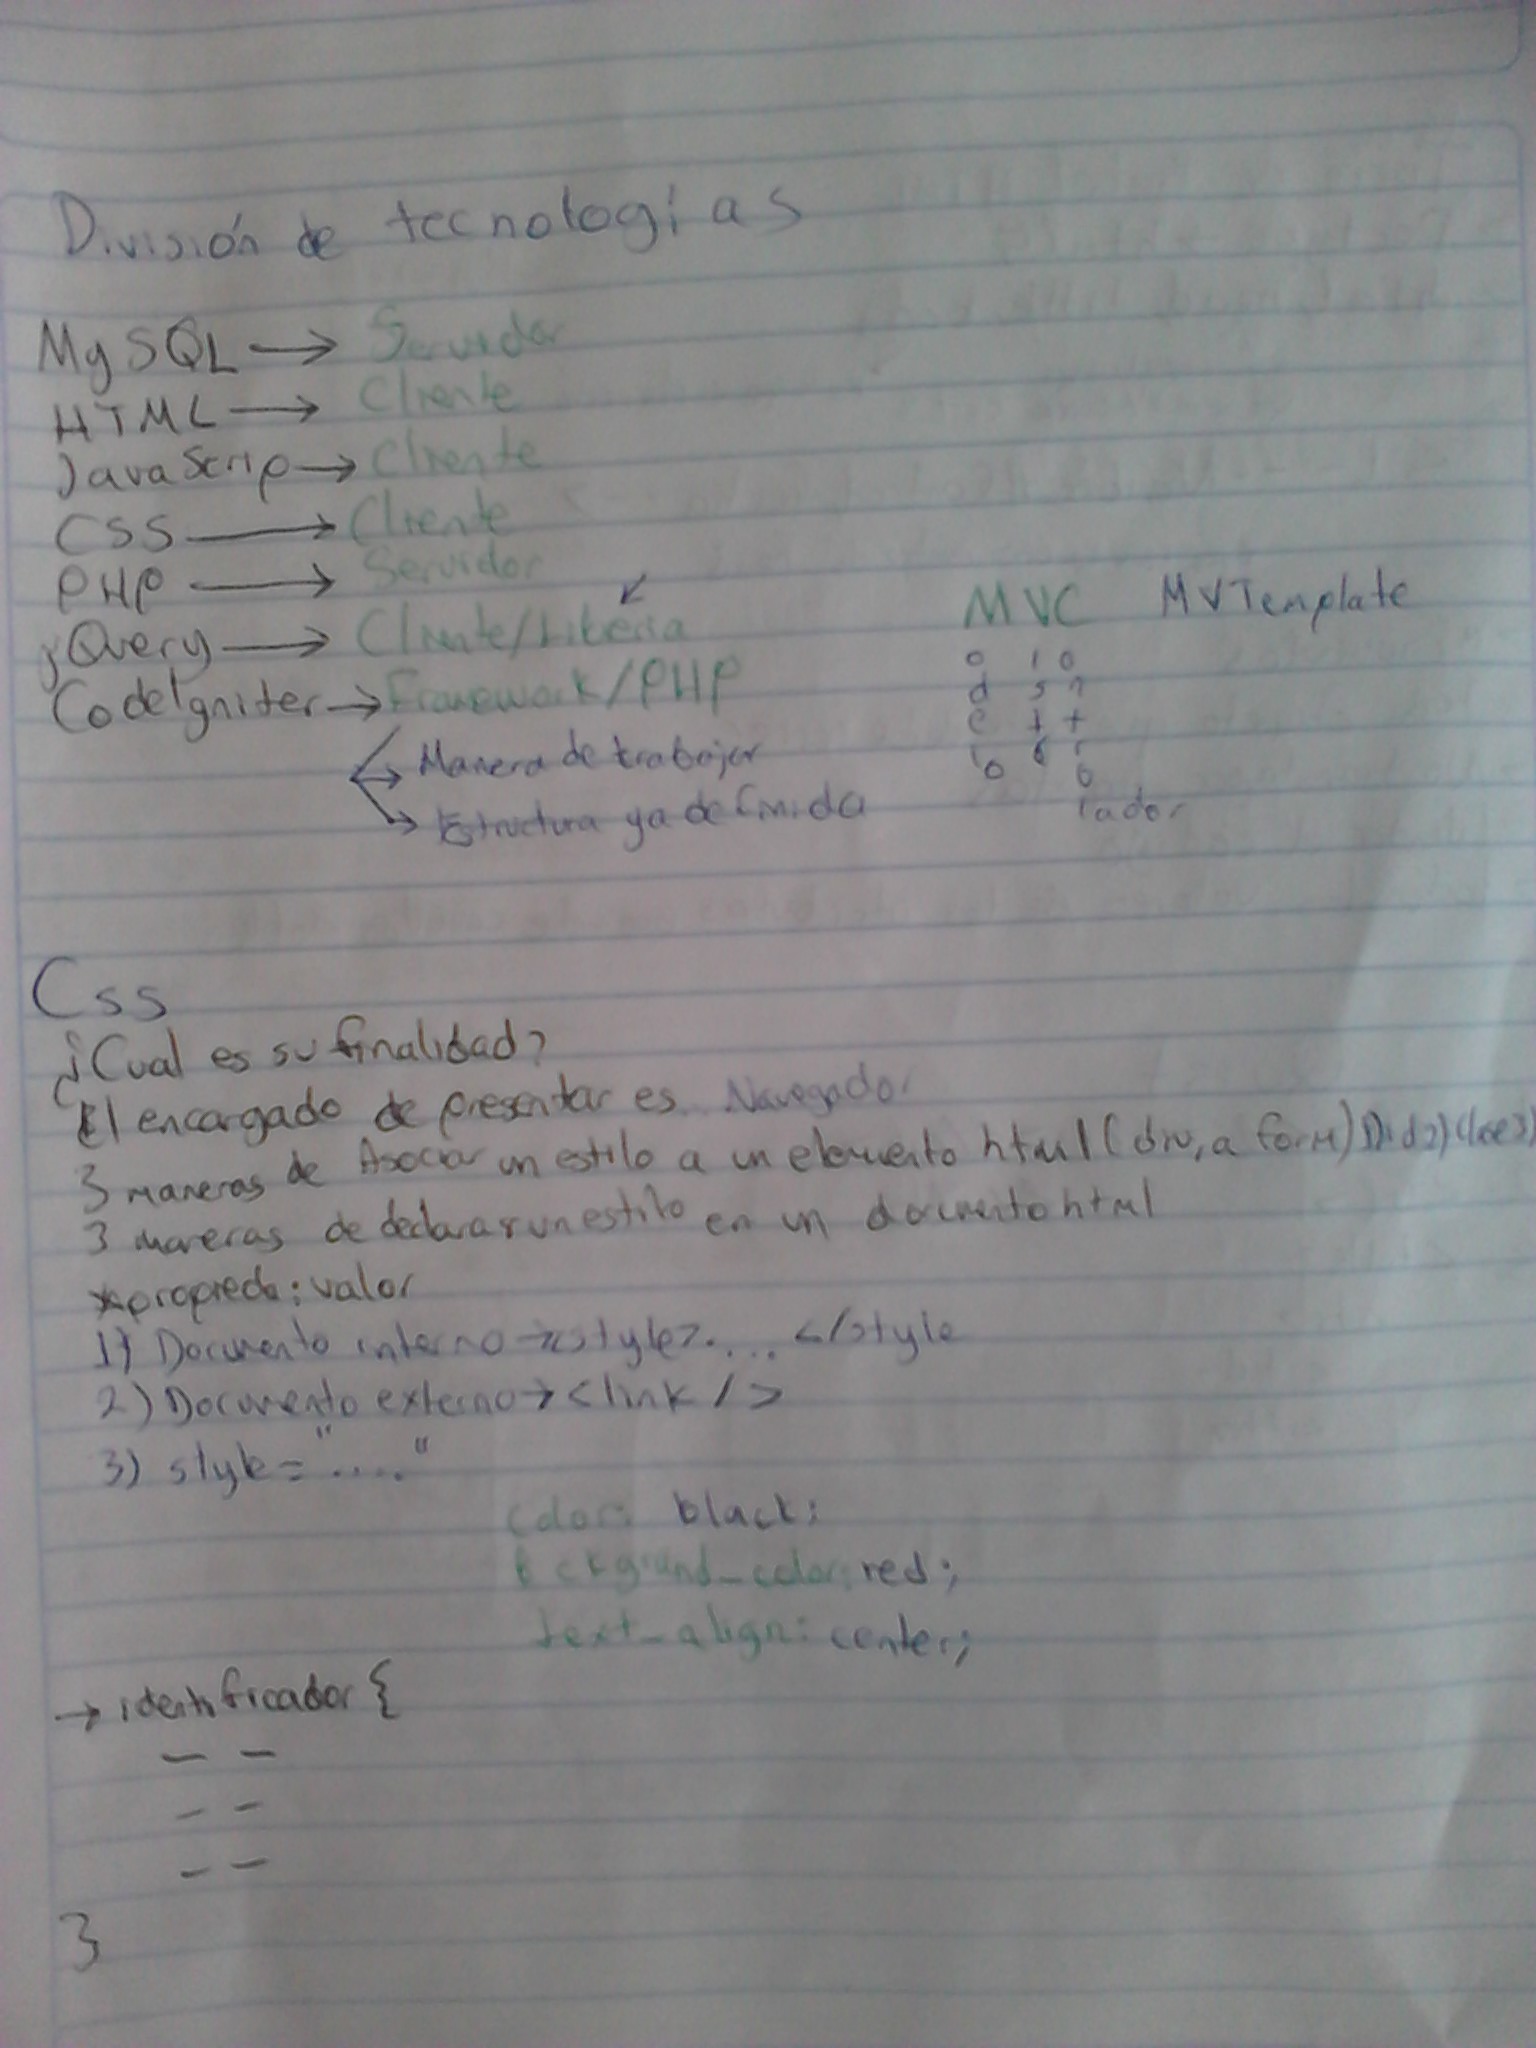 División de tecnologías
MySQL → Servidor
HTML → Cliente
JavaScrip → Cliente
CSS → Cliente
PHP → Servidor
jQuery → Cliente/Libería
CodeIgniter → Framework/PHP
→ Manera de trabajar
→ Estructura ya definida
MVC MVTemplate
odelo
ista
ontro
lador
Css
¿Cual es su finalidad?
El encargado de presentar es Navegador
3 maneras de Asociar un estilo a un elemento html (div, a form)
3 maneras de declarar un estilo en un documento html
*propieda: valor
1) Documento interno → <style> .... </style
2) Documento externo → <link />
3) style = "....."
color: black;
backgraund_color: red;
text_align: center;
→ identificador {
— —
— —
— —
}